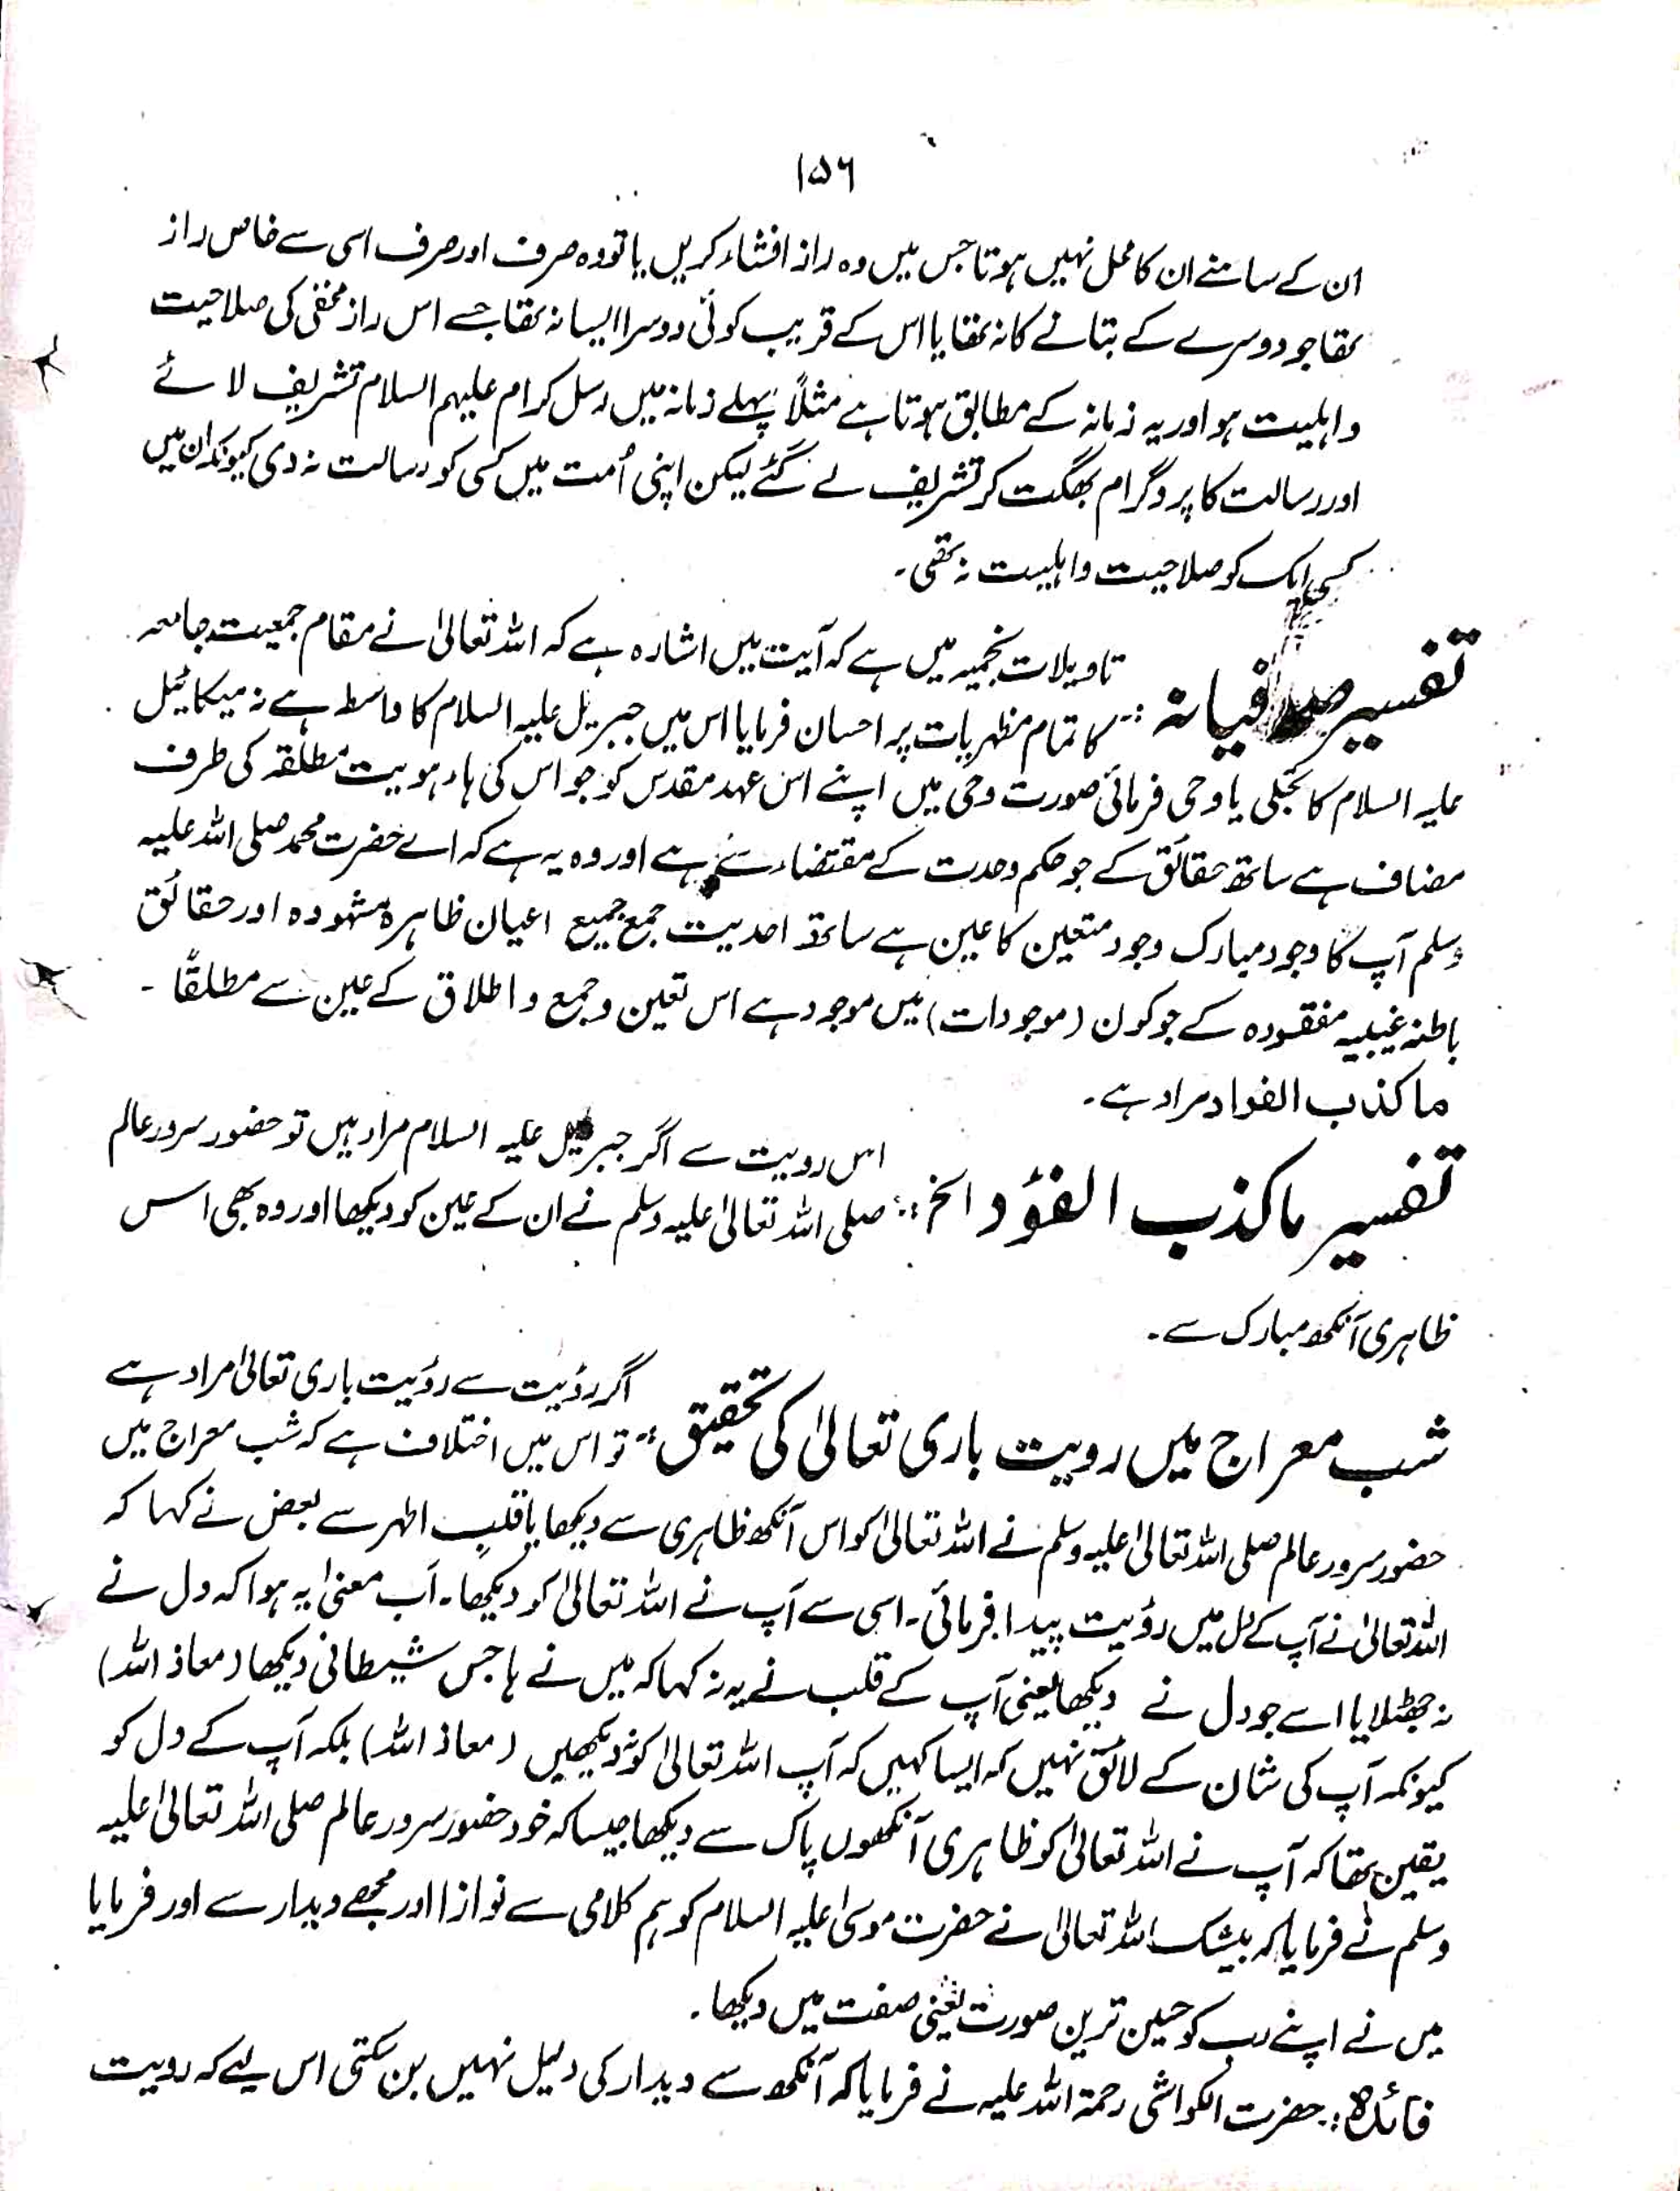 ۱۵۶
ان کے سامنے ان کا محمل نہیں ہوتا جس میں وہ راز افشاء کریں یا تو وہ صرف اور صرف اسی سے خاص راز
تھا جو دوسرے کے بتانے کا نہ تھا یا اس کے قریب کوئی دوسرا ایسا نہ تھا جسے اس راز مخفی کی صلاحیت
و اہلیت ہو اور یہ زمانہ کے مطابق ہوتا ہے مثلاً پہلے زمانہ میں رسل کرام علیہم السلام تشریف لائے
اور رسالت کا پروگرام بھگت کر تشریف لے گئے لیکن اپنی اُمت میں کسی کو رسالت نہ دی کیونکہ ان میں
کسی ایک کو صلاحیت و اہلیت نہ تھی۔
تفسیر صوفیانہ :- تاویلات نجمیہ میں ہے کہ آیت میں اشارہ ہے کہ اللہ تعالیٰ نے مقام جمعیت جامعہ
کا تمام مظہریات پر احسان فرمایا اس میں جبریل علیہ السلام کا واسطہ ہے نہ میکائیل
علیہ السلام کا تجلی یا وحی فرمائی صورت وحی میں اپنے اس عہد مقدس کو جو اس کی ہاء ہویت مطلقہ کی طرف
مضاف ہے ساتھ حقائق کے جو حکم وحدت کے مقتضاء سے ہے اور وہ یہ ہے کہ اے حضرت محمد صلی اللہ علیہ
وسلم آپ کا وجود مبارک وجود متعین کا عین ہے ساتھ احدیت جمع جمیع اعیان ظاہرہ مشہودہ اور حقائق
باطنہ غیبیہ مفقودہ کے جو کون (موجودات) میں موجود ہے اس تعین و جمع و اطلاق کے عین سے مطلقاً۔
ماکذب الفواد مراد ہے۔
تفسیر ماکذب الفؤد الخ :: اس رویت سے اگر جبریل علیہ السلام مراد ہیں تو حضور سرور عالم
صلی اللہ تعالیٰ علیہ وسلم نے ان کے عین کو دیکھا اور وہ بھی اس
ظاہری آنکھ مبارک سے۔
شب معراج میں رویت باری تعالیٰ کی تحقیق :- اگر رؤیت سے رؤیت باری تعالیٰ مراد ہے
تو اس میں اختلاف ہے کہ شب معراج میں
حضور سرور عالم صلی اللہ تعالیٰ علیہ وسلم نے اللہ تعالیٰ کو اس آنکھ ظاہری سے دیکھا یا قلب اطہر سے بعض نے کہا کہ
اللہ تعالیٰ نے آپ کے دل میں رؤیت پیدا فرمائی۔ اسی سے آپ نے اللہ تعالیٰ کو دیکھا۔ اب معنیٰ یہ ہوا کہ دل نے
نہ جھٹلایا اسے جو دل نے دیکھا یعنی آپ کے قلب نے یہ نہ کہا کہ میں نے ہاجس شیطانی دیکھا (معاذ اللہ)
کیونکہ آپ کی شان کے لائق نہیں کہ ایسا کہیں کہ آپ اللہ تعالیٰ کو نہ دیکھیں (معاذ اللہ) بلکہ آپ کے دل کو
یقین تھا کہ آپ نے اللہ تعالیٰ کو ظاہری آنکھوں پاک سے دیکھا جیسا کہ خود حضور سرور عالم صلی اللہ تعالیٰ علیہ
وسلم نے فرمایا کہ بیشک اللہ تعالیٰ نے حضرت موسیٰ علیہ السلام کو ہم کلامی سے نوازا اور مجھے دیدار سے اور فرمایا
میں نے اپنے رب کو حسین ترین صورت یعنی صفت میں دیکھا۔
فائدہ :: حضرت الکواشی رحمۃ اللہ علیہ نے فرمایا کہ آنکھ سے دیدار کی دلیل نہیں بن سکتی اس لیے کہ رویت